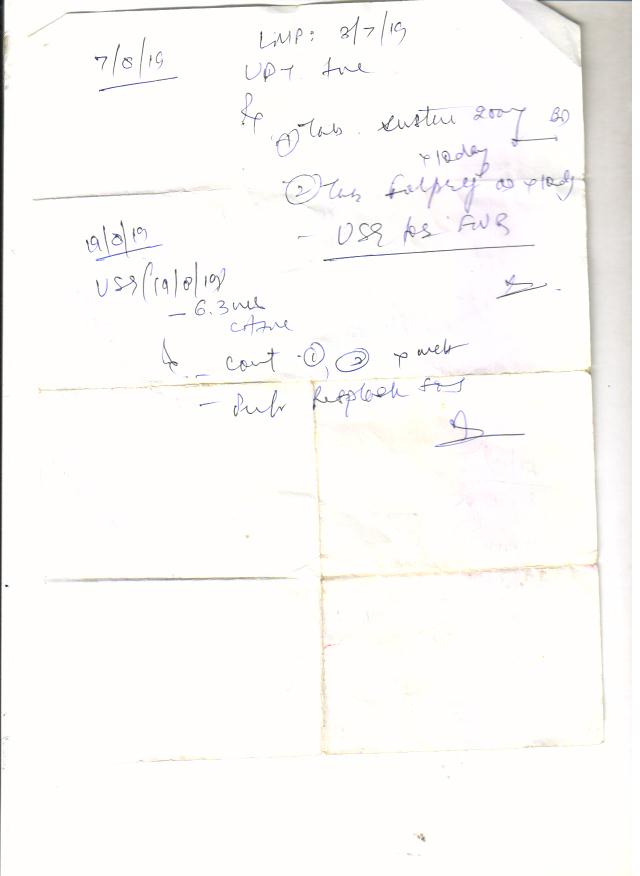 7/8/19 LMP: 3/7/19
UPT +ve
Rx
① Tab. susten 200mg BD
x 10day
② Tab Folprej OD x 10dy
- USG for FWB
19/8/19
USG (19/8/19)
- 6.3wk
CA+ve
- cont ①, ② x
-